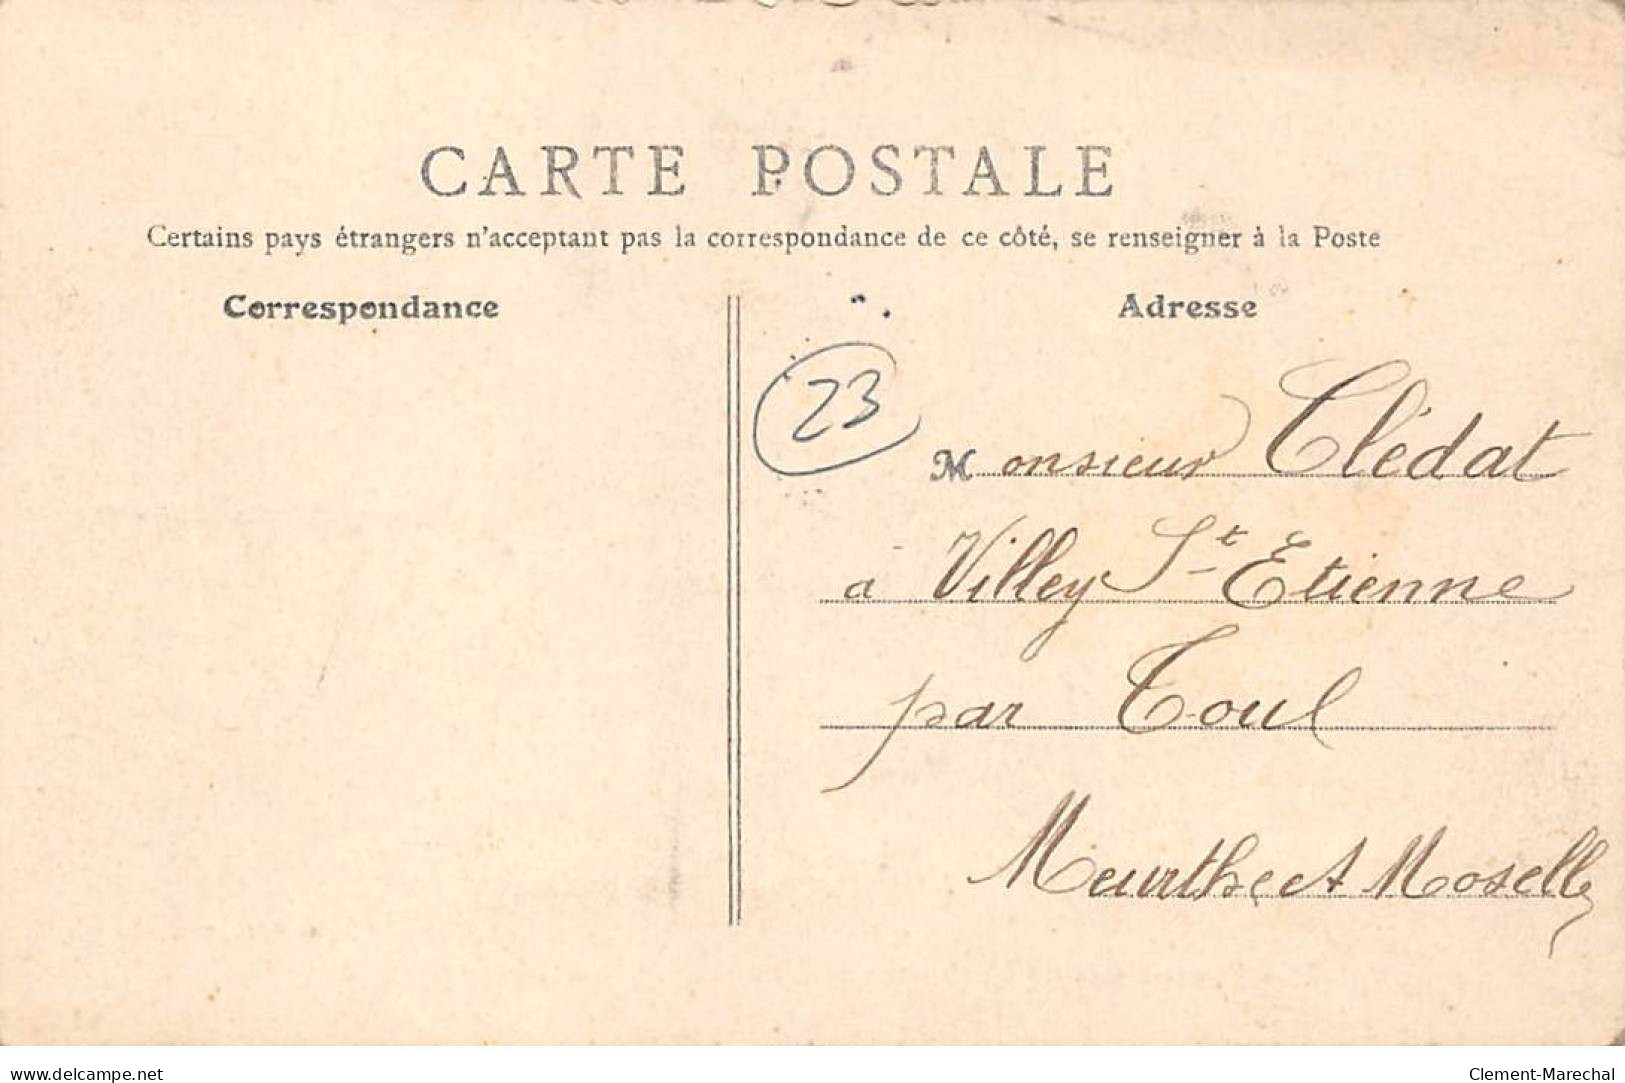 CARTE POSTALE
Certains pays étrangers n'acceptant pas la correspondance de ce côté, se renseigner à la Poste
Correspondance
Adresse
23
Monsieur Clédat
a Villey St Etienne
par Toul
Meurthe et Moselle
www.delcampe.net
Clement-Marechal